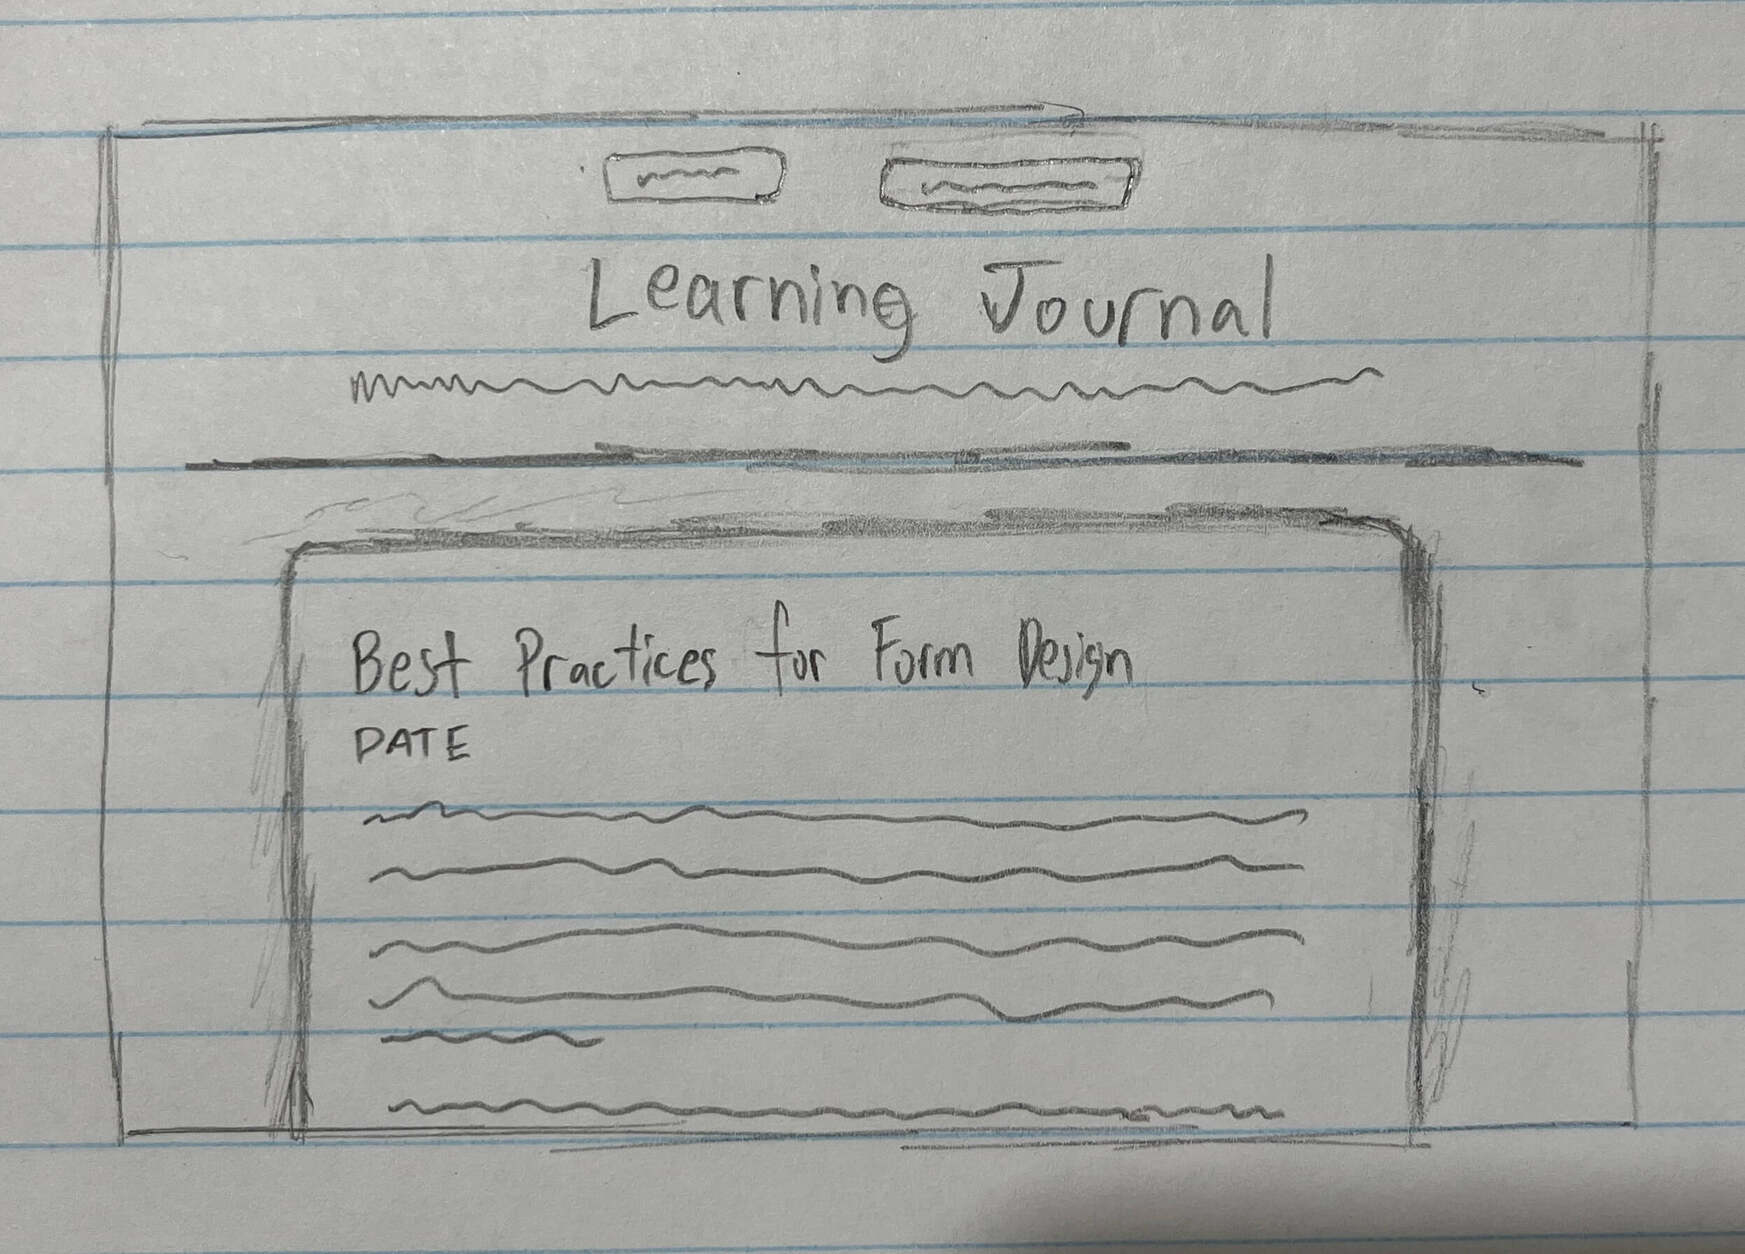 Learning Journal
Best Practices for Form Design
DATE